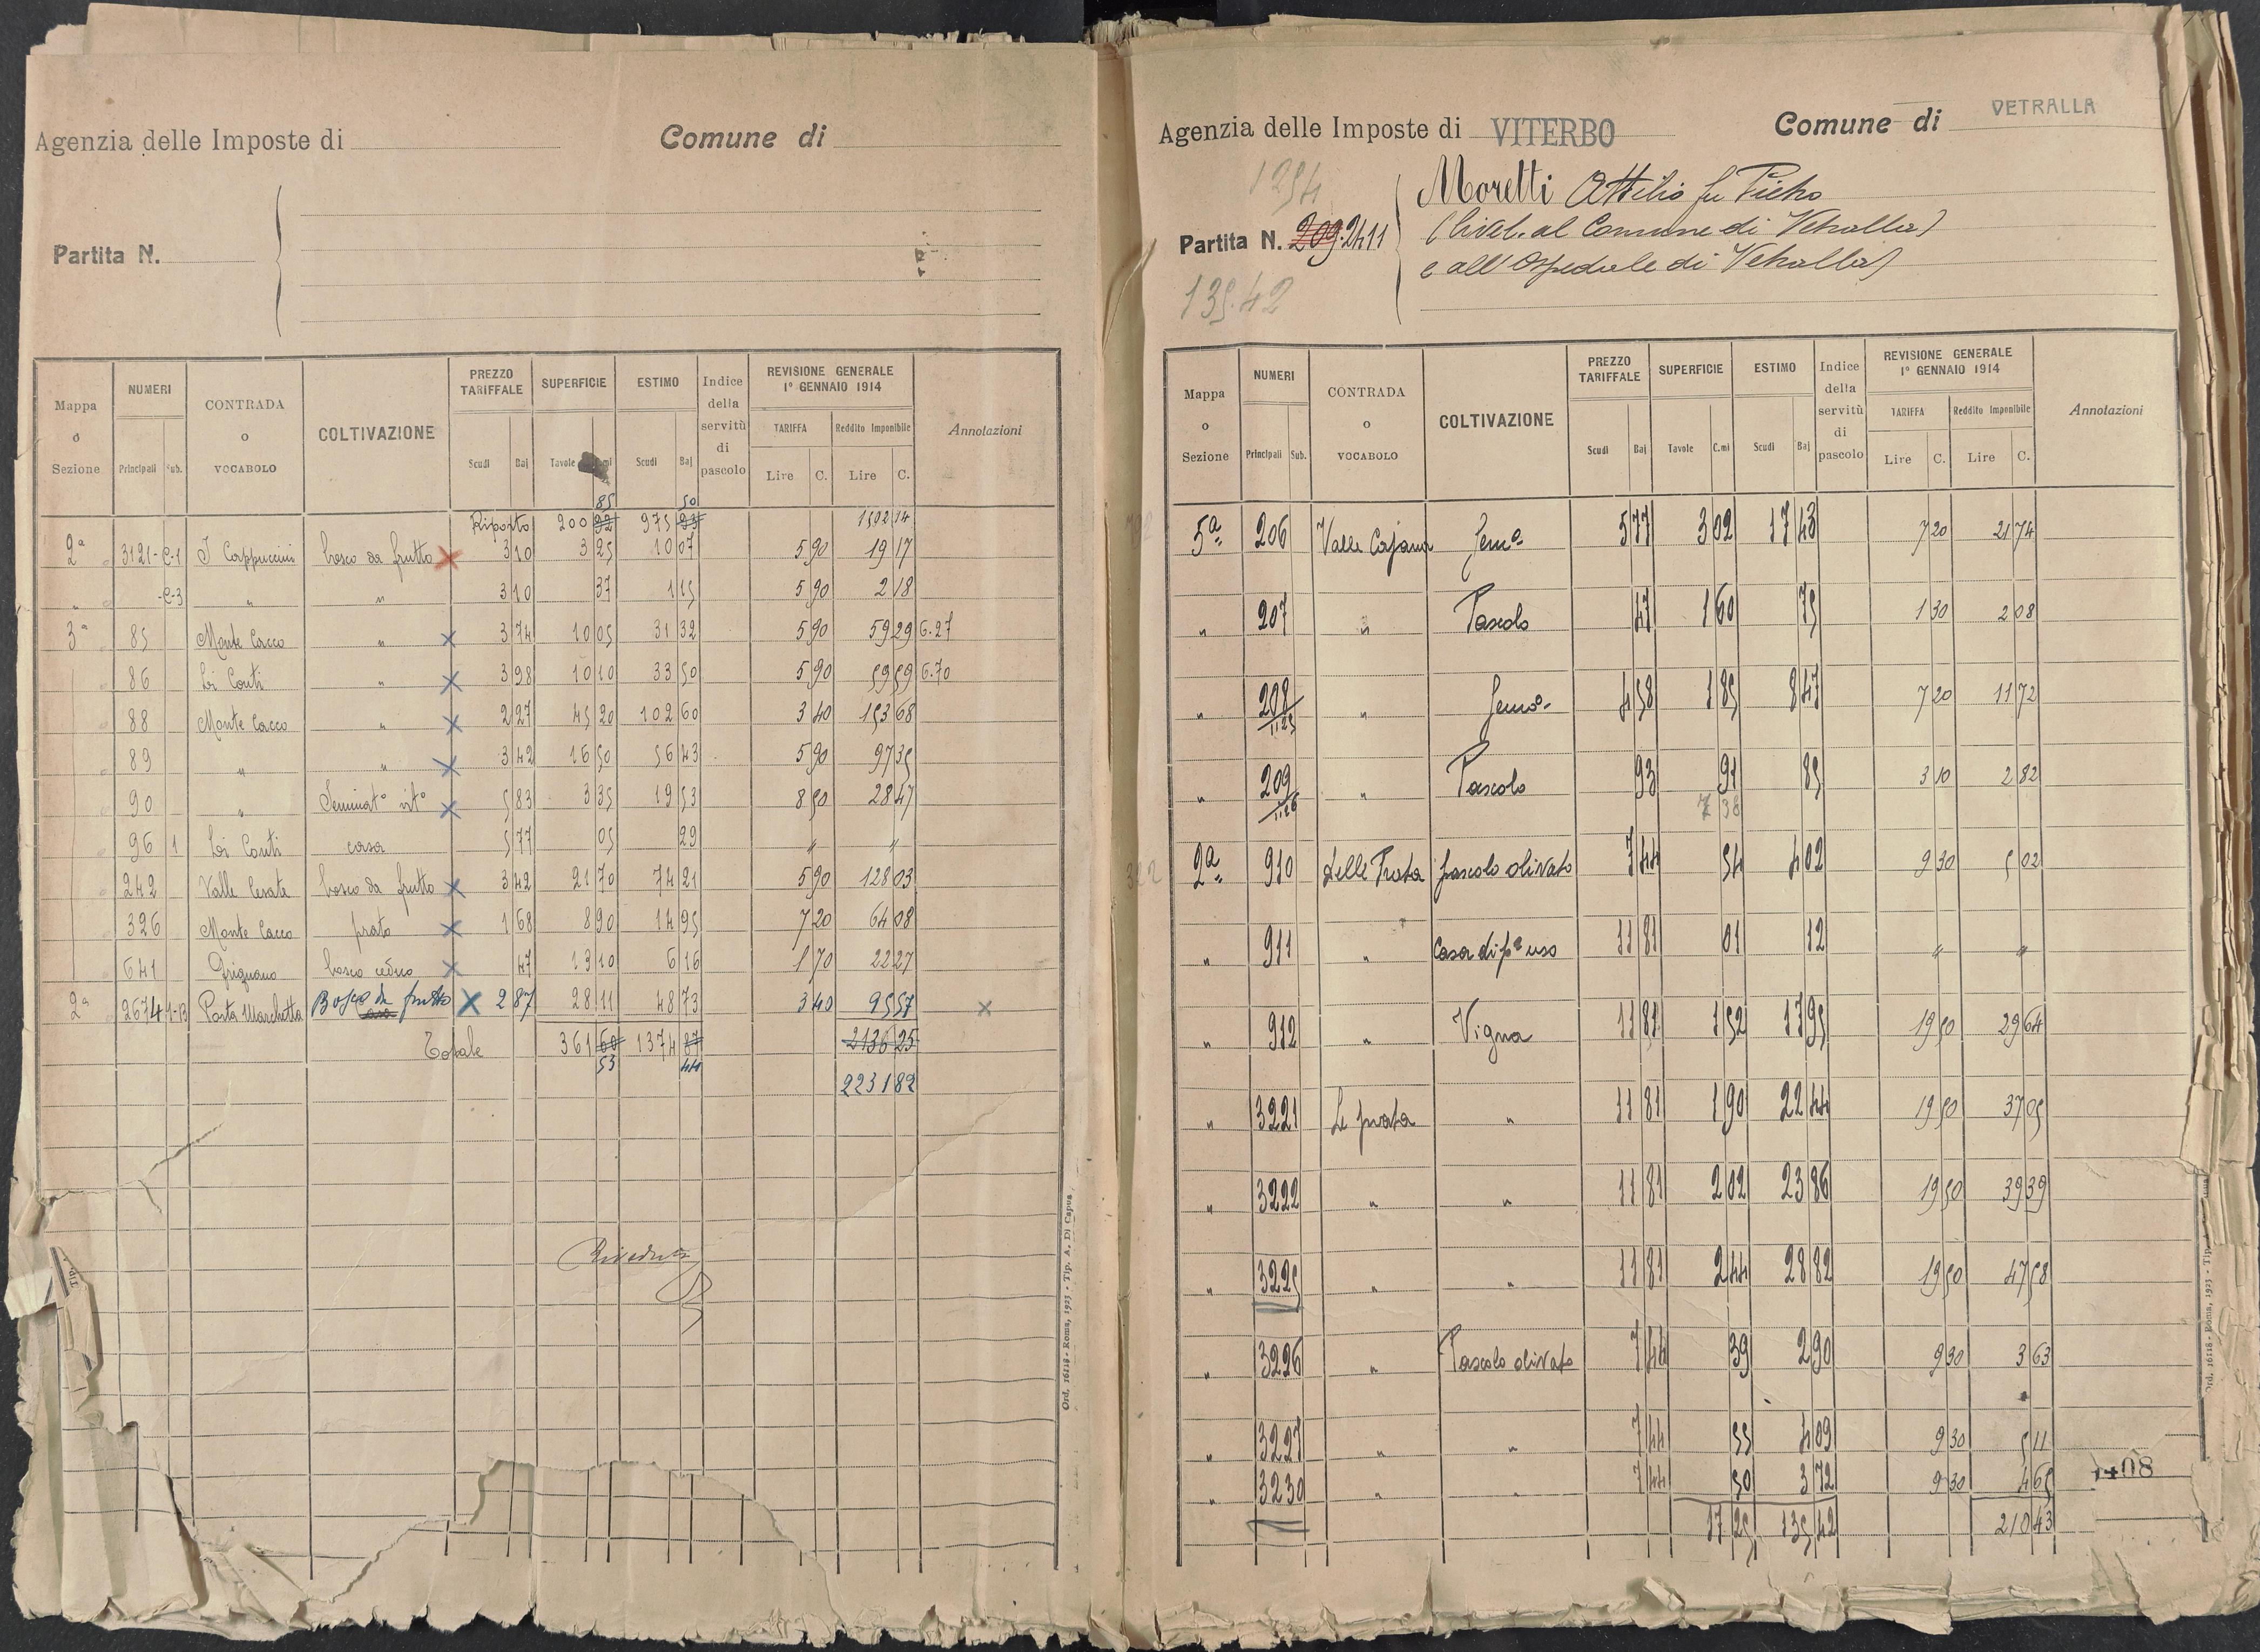 Agenzia delle Imposte di
Comune di
Partita N.
Mappa o Sezione | NUMERI Principali Sub. | CONTRADA o VOCABOLO | COLTIVAZIONE | PREZZO TARIFFALE Scudi Baj | SUPERFICIE Tavole C.mi | ESTIMO Scudi Baj | Indice della servitù di pascolo | REVISIONE GENERALE 1° GENNAIO 1914 TARIFFA Lire C. Reddito Imponibile Lire C. | Annotazioni
85 50
Riporto 200 92 975 93 1502 14
2ª 3121- C-1 I Cappuccini bosco da frutto × 3 10 3 25 10 07 5 90 19 17
" -C-3 " " 3 10 37 1 15 5 90 2 18
3ª 85 Monte Cacco " × 3 74 10 05 31 32 5 90 59 29 6.27
86 Li Conti " × 3 98 10 10 33 50 5 90 59 59 6.70
88 Monte Cacco " × 2 27 45 20 102 60 3 40 153 68
89 " " × 3 42 16 50 56 43 5 90 97 35
90 " Seminat° vit° × 5 83 3 35 19 53 8 50 28 47
96 1 Li Conti casa 5 77 05 29 " "
242 Valle Cesata bosco da frutto × 3 42 21 70 74 21 5 90 128 03
326 Monte Cacco prato × 1 68 8 90 14 95 7 20 64 08
641 Grignano bosco ceduo × 47 13 10 6 16 1 70 22 27
2ª 2674 1-B Porta Marchetta Bosco da frutto × 2 87 28 11 48 73 3 40 95 57 ×
Totale 361 60 1374 87 2136 25
53 44
2231 82
Riveduta
Ord. 16118 - Roma, 1923 - Tip. A. Di Capua
Tip.
Agenzia delle Imposte di VITERBO
Comune di VETRALLA
1294
Moretti Attilio fu Pietro
Partita N. 209. 2411
(livel. al Comune di Vetralla)
e all'Ospedale di Vetralla)
135.42
Mappa o Sezione | NUMERI Principali Sub. | CONTRADA o VOCABOLO | COLTIVAZIONE | PREZZO TARIFFALE Scudi Baj | SUPERFICIE Tavole C.mi | ESTIMO Scudi Baj | Indice della servitù di pascolo | REVISIONE GENERALE 1° GENNAIO 1914 TARIFFA Lire C. Reddito Imponibile Lire C. | Annotazioni
5ª 206 Valle Cajana Semº 5 77 3 02 17 43 7 20 21 74
" 207 " Pascolo 47 1 60 75 1 30 2 08
" 208/1125 " Semº 4 58 1 85 8 47 7 20 11 72
" 209/1126 " Pascolo 93 91 85 3 10 2 82
7 38
322 2ª 910 delle Prata pascolo olivato 7 44 54 4 02 9 30 5 02
" 911 " Casa di pº uso 11 81 01 12 " "
" 912 " Vigna 11 81 1 52 17 95 19 50 29 64
" 3221 Le prata " 11 81 1 90 22 44 19 50 37 05
" 3222 " " 11 81 2 02 23 86 19 50 39 39
" 3225 " " 11 81 2 44 28 82 19 50 47 58
" 3226 " Pascolo olivato 7 44 39 2 90 9 30 3 63
" 3227 " " 7 44 55 4 09 9 30 5 11
" 3230 " " 7 44 50 3 72 9 30 4 65
17 25 135 42 210 43
408
Ord. 16118 - Roma, 1923 - Tip.